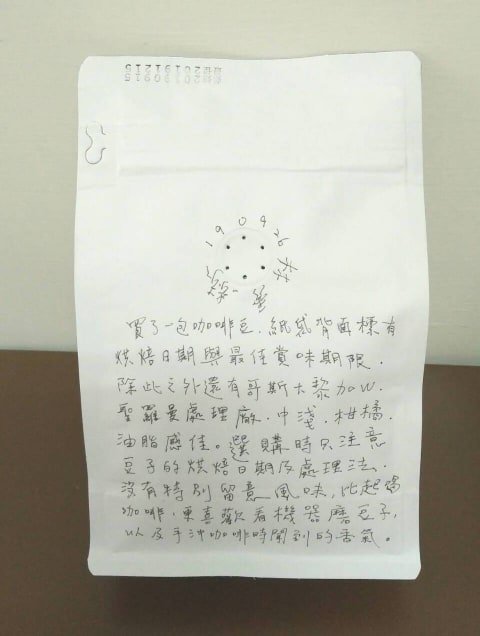 20190915
20191215
190926
買了一包咖啡豆.紙袋背面標有
烘焙日期與最佳賞味期限.
除此之外還有哥斯大黎加W.
聖羅曼處理廠.中淺.柑橘.
油脂感佳。選購時只注意
豆子的烘焙日期及處理法.
沒有特別留意風味,比起喝
咖啡,更喜歡看機器磨豆子,
以及手沖咖啡時聞到的香氣。